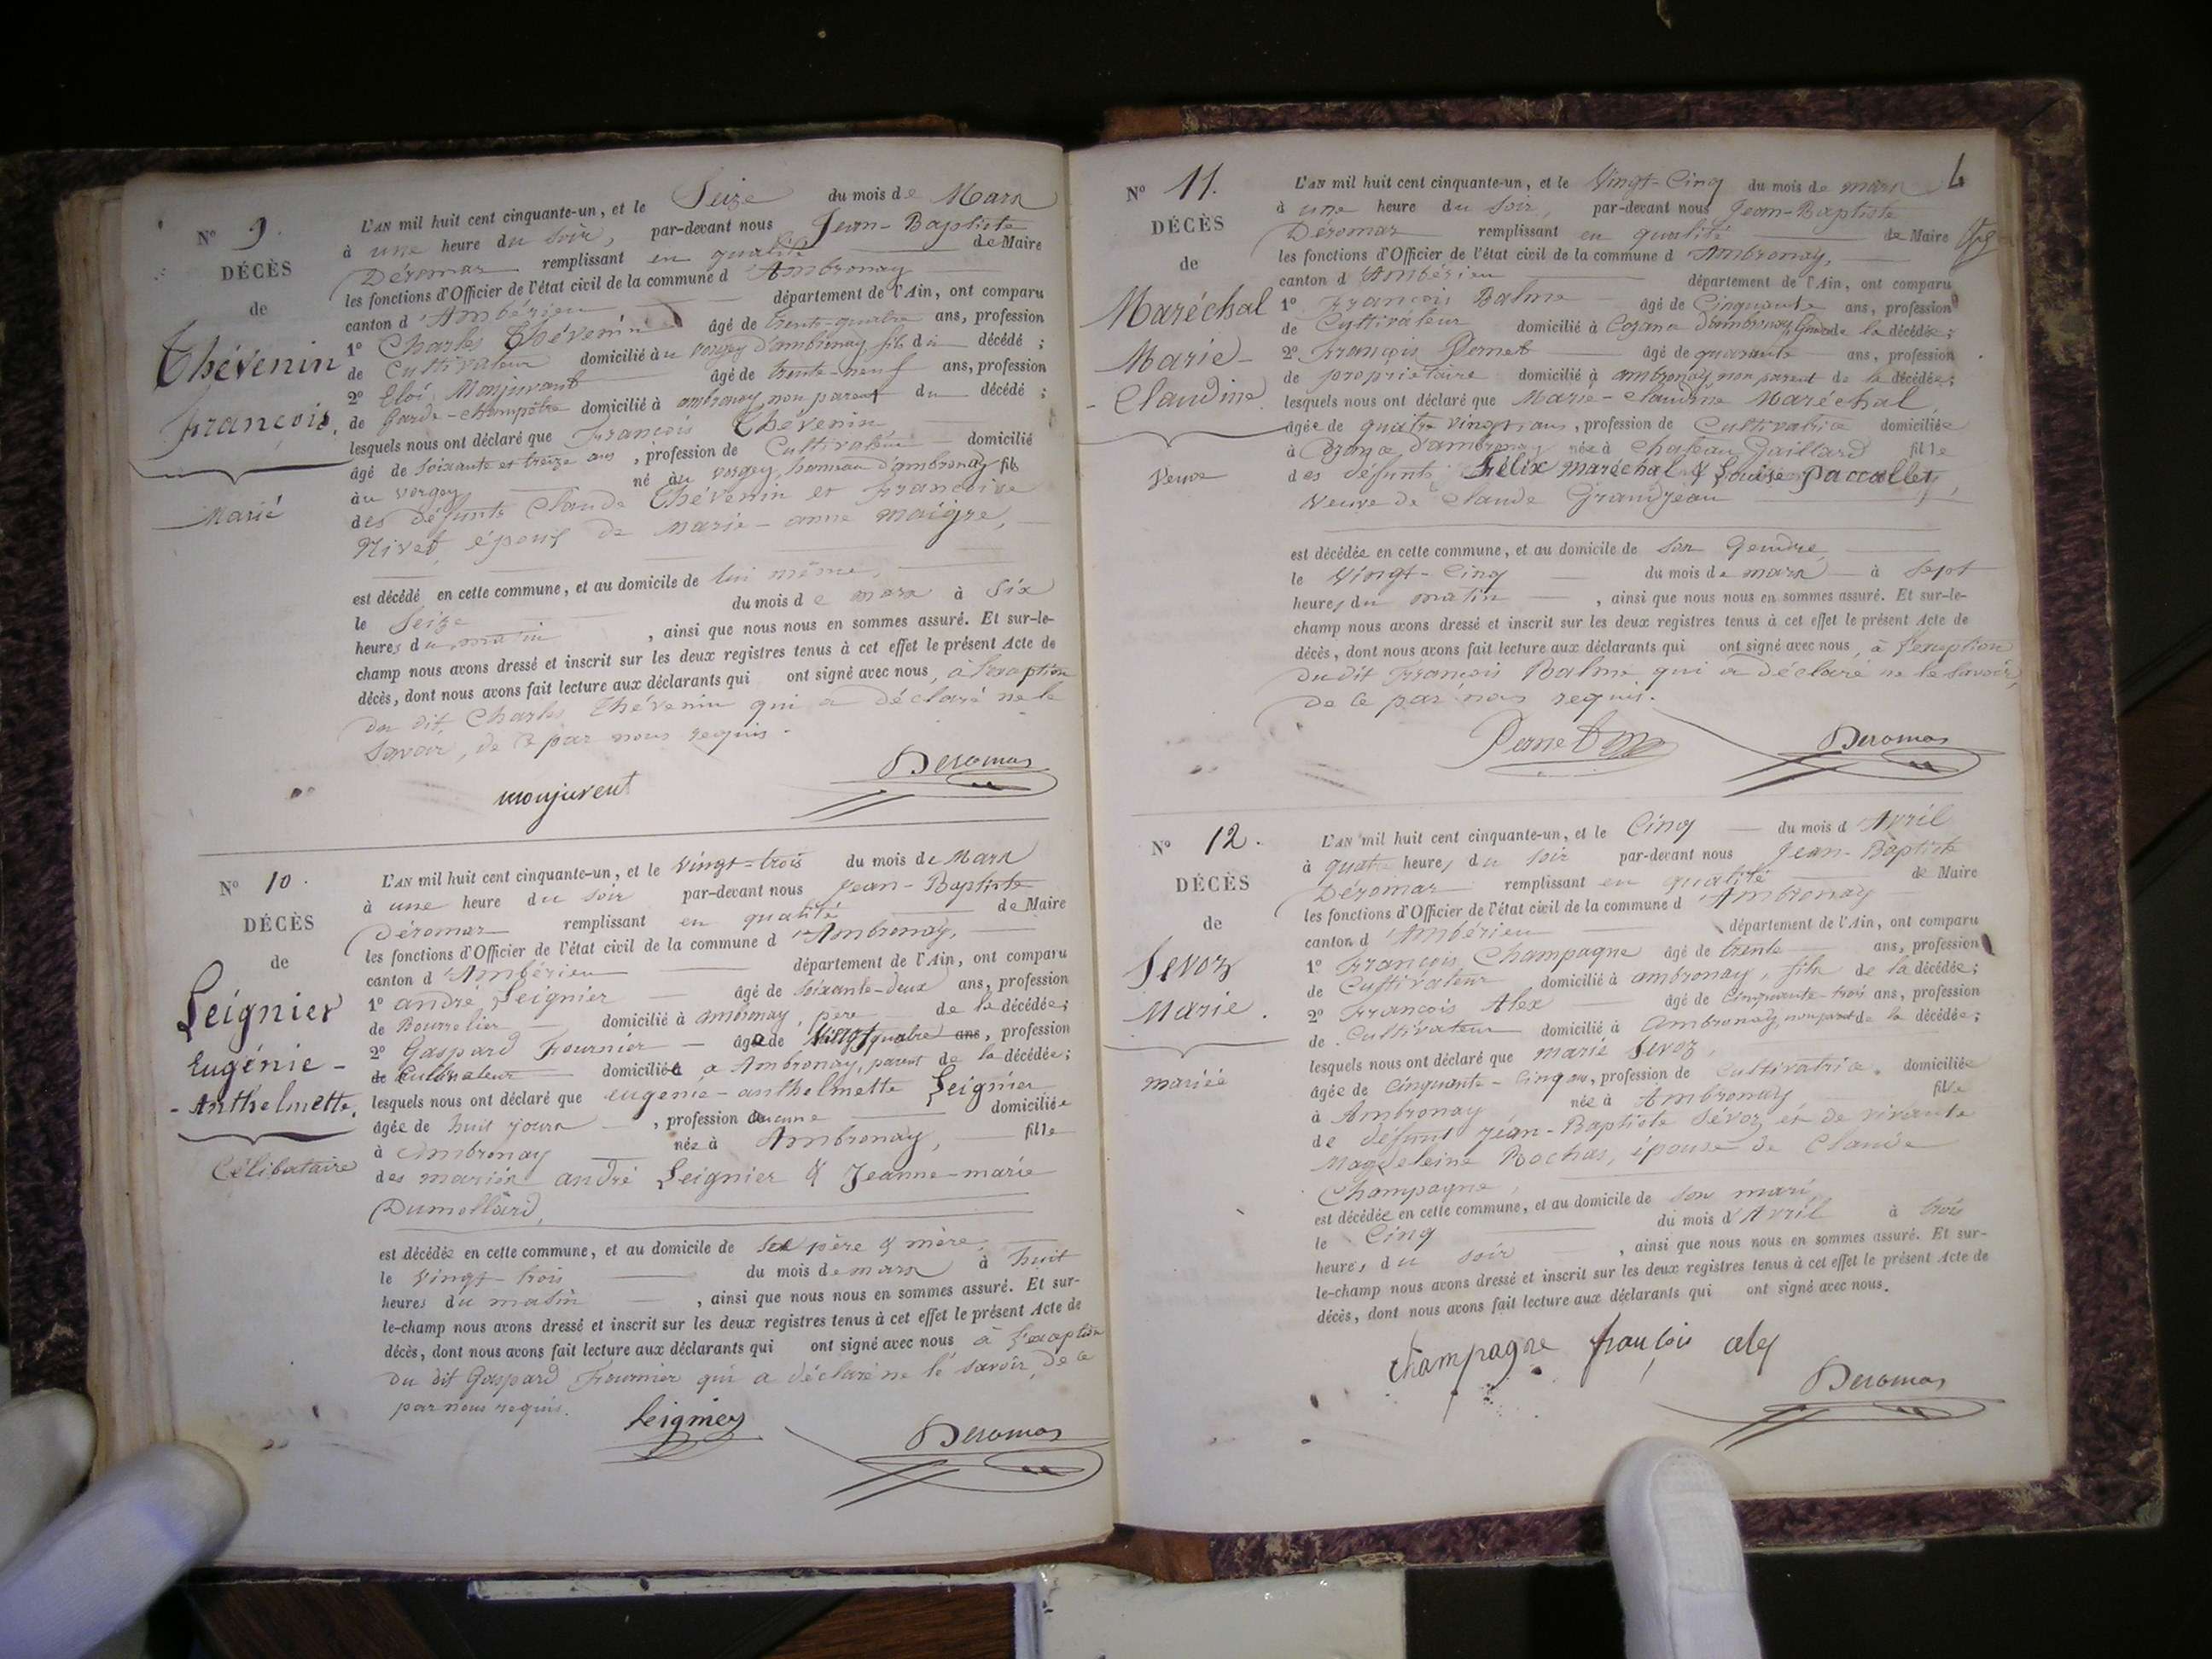 N° 9.
DÉCÈS
de
Thévenin
François.
Marié
L'AN mil huit cent cinquante-un, et le Seize du mois de Mars
à une heure du soir, par-devant nous Jean-Baptiste
Déromas remplissant en qualité de Maire
les fonctions d'Officier de l'état civil de la commune d'Ambronay
canton d'Ambérieu département de l'Ain, ont comparu
1° Charles Thévenin âgé de trente-quatre ans, profession
de Cultivateur domicilié au vorgey d'ambronay fils du décédé ;
2° Eloi Monjuvent âgé de trente-neuf ans, profession
de Garde-champêtre domicilié à ambronay, non parent du décédé ;
lesquels nous ont déclaré que François Thévenin,
âgé de soixante et treize ans, profession de Cultivateur domicilié
au vorgey né au vorgey, hameau d'ambronay fils
des défunts Claude Thévenin et Françoise
Nivet, époux de Marie-anne Maigre,
est décédé en cette commune, et au domicile de lui même,
le Seize du mois de mars à Six
heures du matin, ainsi que nous nous en sommes assuré. Et sur-le-
champ nous avons dressé et inscrit sur les deux registres tenus à cet effet le présent Acte de
décès, dont nous avons fait lecture aux déclarants qui ont signé avec nous, à l'exception
du dit Charles Thévenin qui a déclaré ne le
savoir, de ce par nous requis.
monjuvent Deromas
N° 10.
DÉCÈS
de
Leignier
Eugénie-
-Anthelmette.
Célibataire
L'AN mil huit cent cinquante-un, et le vingt-trois du mois de Mars
à une heure du soir par-devant nous Jean-Baptiste
Déromas remplissant en qualité de Maire
les fonctions d'Officier de l'état civil de la commune d'Ambronay,
canton d'Ambérieu département de l'Ain, ont comparu
1° andré Leignier âgé de soixante-deux ans, profession
de Bourrelier domicilié à ambronay, père de la décédée;
2° Gaspard Fournier âgé de Vingt quatre ans, profession
de Cultivateur domicilié à Ambronay, parent de la décédée;
lesquels nous ont déclaré que eugénie-anthelmette Leignier
âgée de huit jours, profession aucune domiciliée
à Ambronay née à Ambronay, fille
des mariés andré Leignier & Jeanne-marie
Dumollard,
est décédée en cette commune, et au domicile de ses père & mère,
le vingt trois du mois de mars à huit
heures du matin, ainsi que nous nous en sommes assuré. Et sur-
le-champ nous avons dressé et inscrit sur les deux registres tenus à cet effet le présent Acte de
décès, dont nous avons fait lecture aux déclarants qui ont signé avec nous à l'exception
du dit Gaspard Fournier qui a déclaré ne le savoir, de ce
par nous requis.
Leignier Deromas
N° 11.
DÉCÈS
de
Maréchal
Marie-
-Claudine.
Veuve
L'AN mil huit cent cinquante-un, et le Vingt-Cinq du mois de mars
à une heure du soir, par-devant nous Jean-Baptiste
Déromas remplissant en qualité de Maire
les fonctions d'Officier de l'état civil de la commune d'Ambronay,
canton d'Ambérieu département de l'Ain, ont comparu
1° François Balme âgé de Cinquante ans, profession
de Cultivateur domicilié à d'ambronay, de la décédée;
2° François Pernet âgé de quarante ans, profession
de propriétaire domicilié à ambronay non parent de la décédée;
lesquels nous ont déclaré que Marie-Claudine Maréchal
âgée de quatre vingt ans, profession de Cultivatrice domiciliée
à d'ambronay née à Chateau Gaillard fille
des défunts Félix Maréchal & Louise Paccallet,
Veuve de Claude Grandjean
est décédée en cette commune, et au domicile de son Gendre,
le Vingt-Cinq du mois de mars à Sept
heures du matin, ainsi que nous nous en sommes assuré. Et sur-le-
champ nous avons dressé et inscrit sur les deux registres tenus à cet effet le présent Acte de
décès, dont nous avons fait lecture aux déclarants qui ont signé avec nous, à l'exception
du dit François Balme qui a déclaré ne le savoir,
de ce par nous requis.
Pernet Deromas
N° 12.
DÉCÈS
de
Sevoz
Marie.
mariée
L'AN mil huit cent cinquante-un, et le Cinq du mois d'Avril
à quatre heures du soir par-devant nous Jean-Baptiste
Déromas remplissant en qualité de Maire
les fonctions d'Officier de l'état civil de la commune d'Ambronay
canton d'Ambérieu département de l'Ain, ont comparu
1° François Champagne âgé de trente ans, profession
de Cultivateur domicilié à ambronay, fils de la décédée;
2° François Alex âgé de cinquante-trois ans, profession
de Cultivateur domicilié à Ambronay, non parent de la décédée;
lesquels nous ont déclaré que marie Sevoz,
âgée de cinquante-cinq ans, profession de Cultivatrice. domiciliée
à Ambronay née à Ambronay, fille
de défunt Jean-Baptiste Sévoz et de vivante
Magdeleine Rochas, épouse de Claude
Champagne,
est décédée en cette commune, et au domicile de son mari,
le Cinq du mois d'Avril à trois
heures du soir, ainsi que nous nous en sommes assuré. Et sur-
le-champ nous avons dressé et inscrit sur les deux registres tenus à cet effet le présent Acte de
décès, dont nous avons fait lecture aux déclarants qui ont signé avec nous.
Champagne françois alex
Deromas